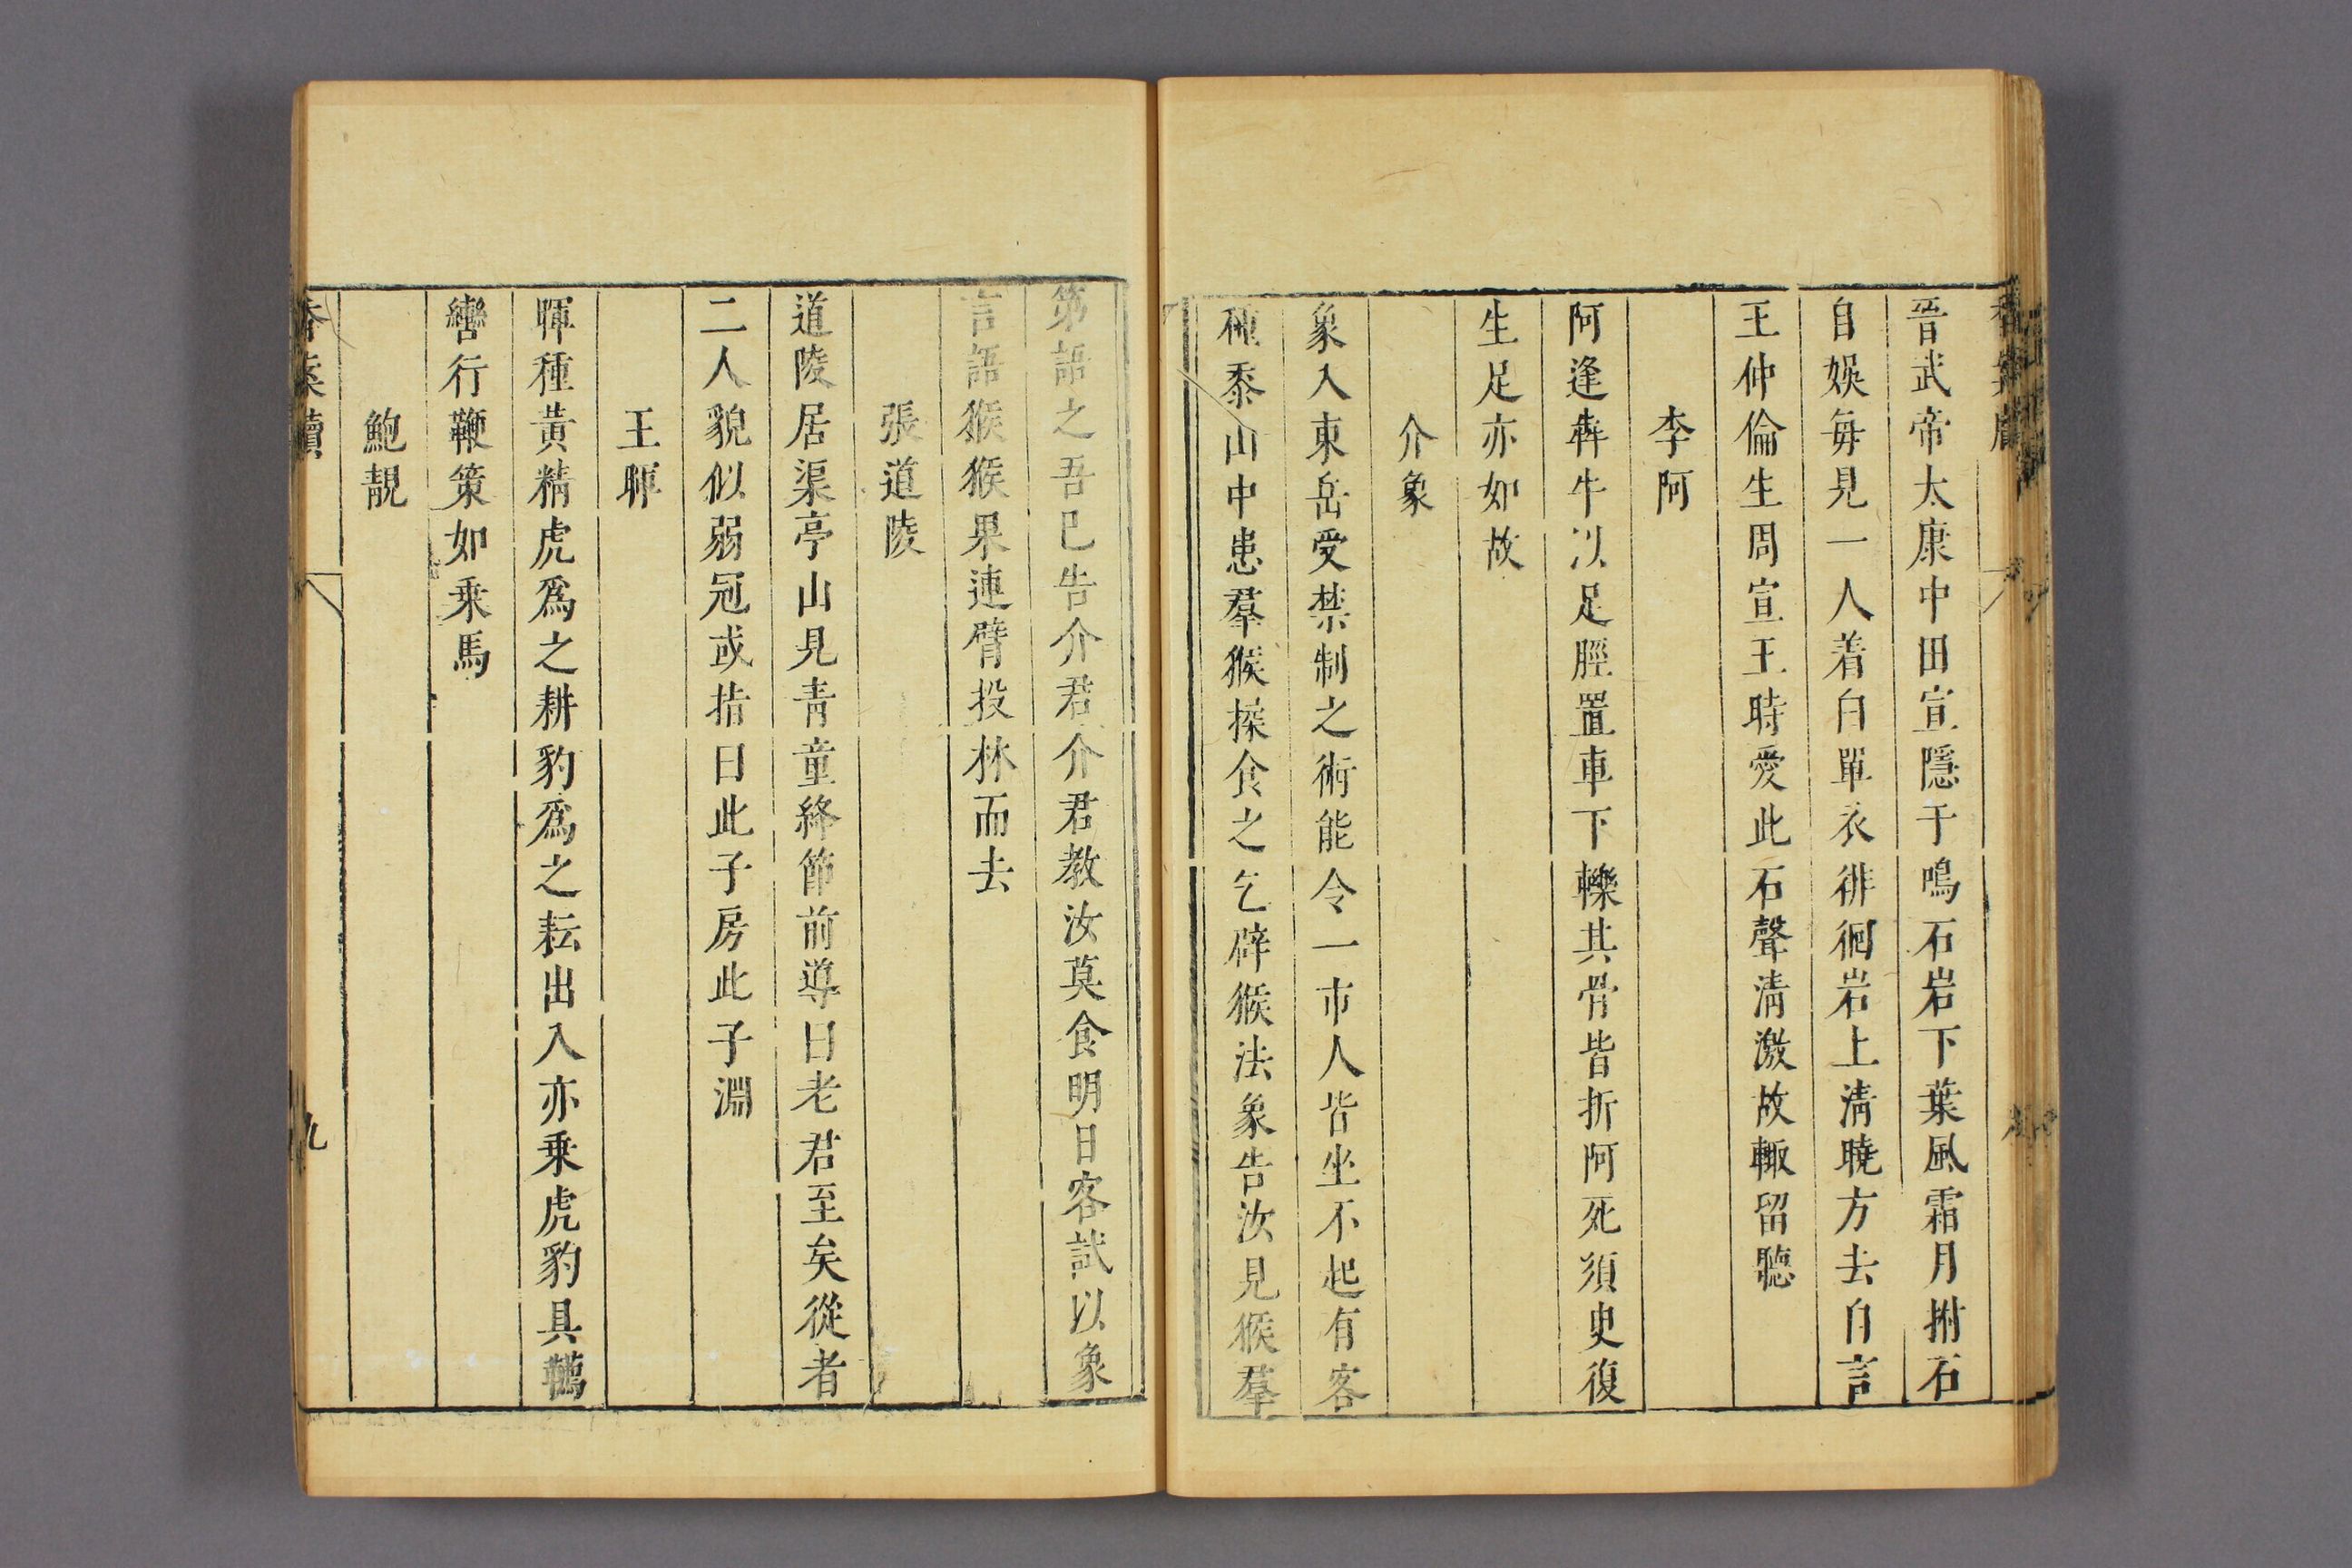 晉武帝太康中田宣隱于鳴石岩下葉風霜月拊石
自娛每見一人着白單衣徘徊岩上淸曉方去自言
王仲倫生周宣王時愛此石聲淸激故輙留聽
李阿
阿逢犇牛以足脛置車下轢其骨皆折阿死須臾復
生足亦如故
介象
象入東岳受禁制之術能令一市人皆坐不起有客
種黍山中患羣猴採食之乞辟猴法象告汝見猴羣
第語之吾已告介君介君教汝莫食明日客試以象
言語猴猴果連臂投林而去
張道陵
道陵居渠亭山見靑童絳節前導曰老君至矣從者
二人貌似弱冠或指曰此子房此子淵
王暉
暉種黃精虎爲之耕豹爲之耘出入亦乗虎豹具韉
轡行鞭策如乗馬
鮑靚
香案牘
九